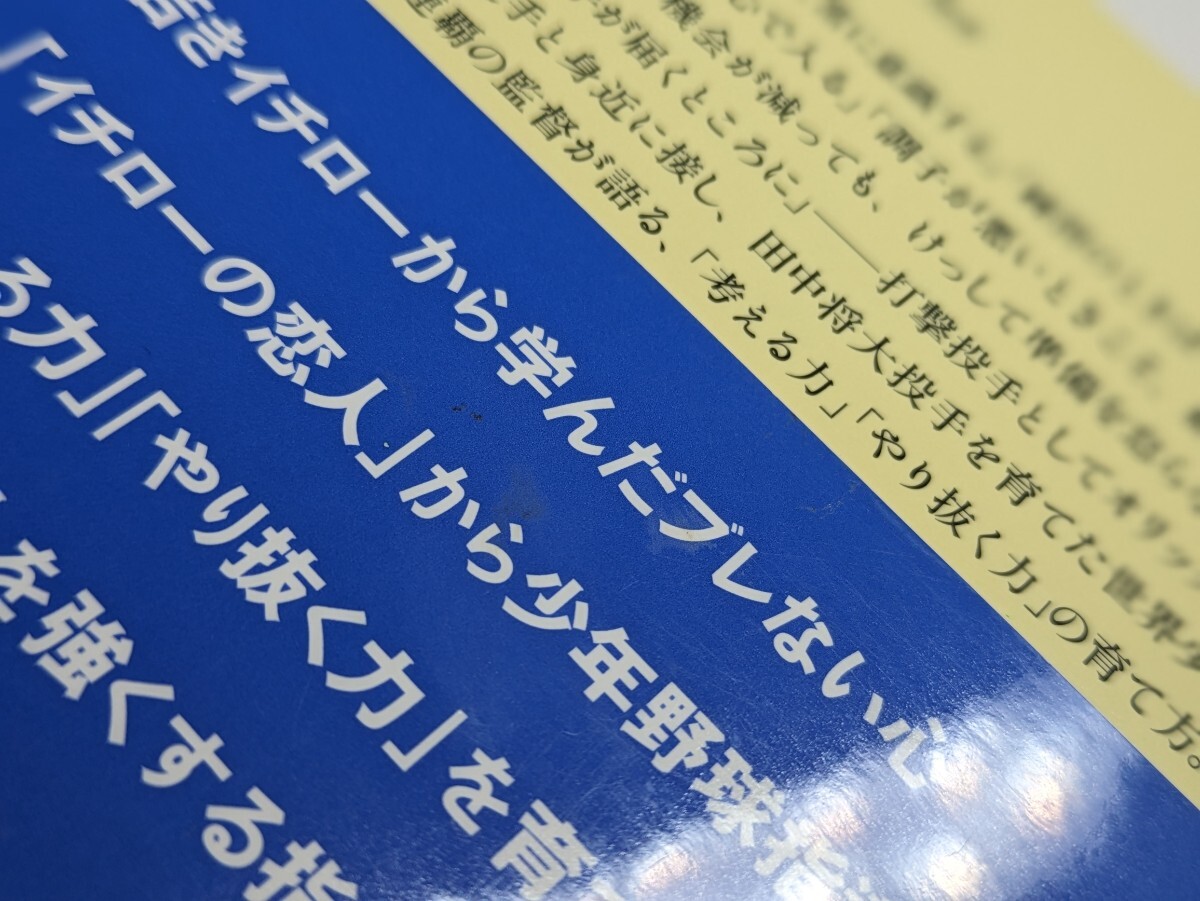 若きイチローから学んだブレない心
「イチローの恋人」から少年野球指
る力」「やり抜く力」を育
を強くする指
心で入る」「調子が悪いときこそ、
機会が減っても、けっして準備を怠ら
手が届くところに」——打撃投手としてオリッ
手と身近に接し、田中将大投手を育てた世界少
連覇の監督が語る、「考える力」「やり抜く力」の育て方。